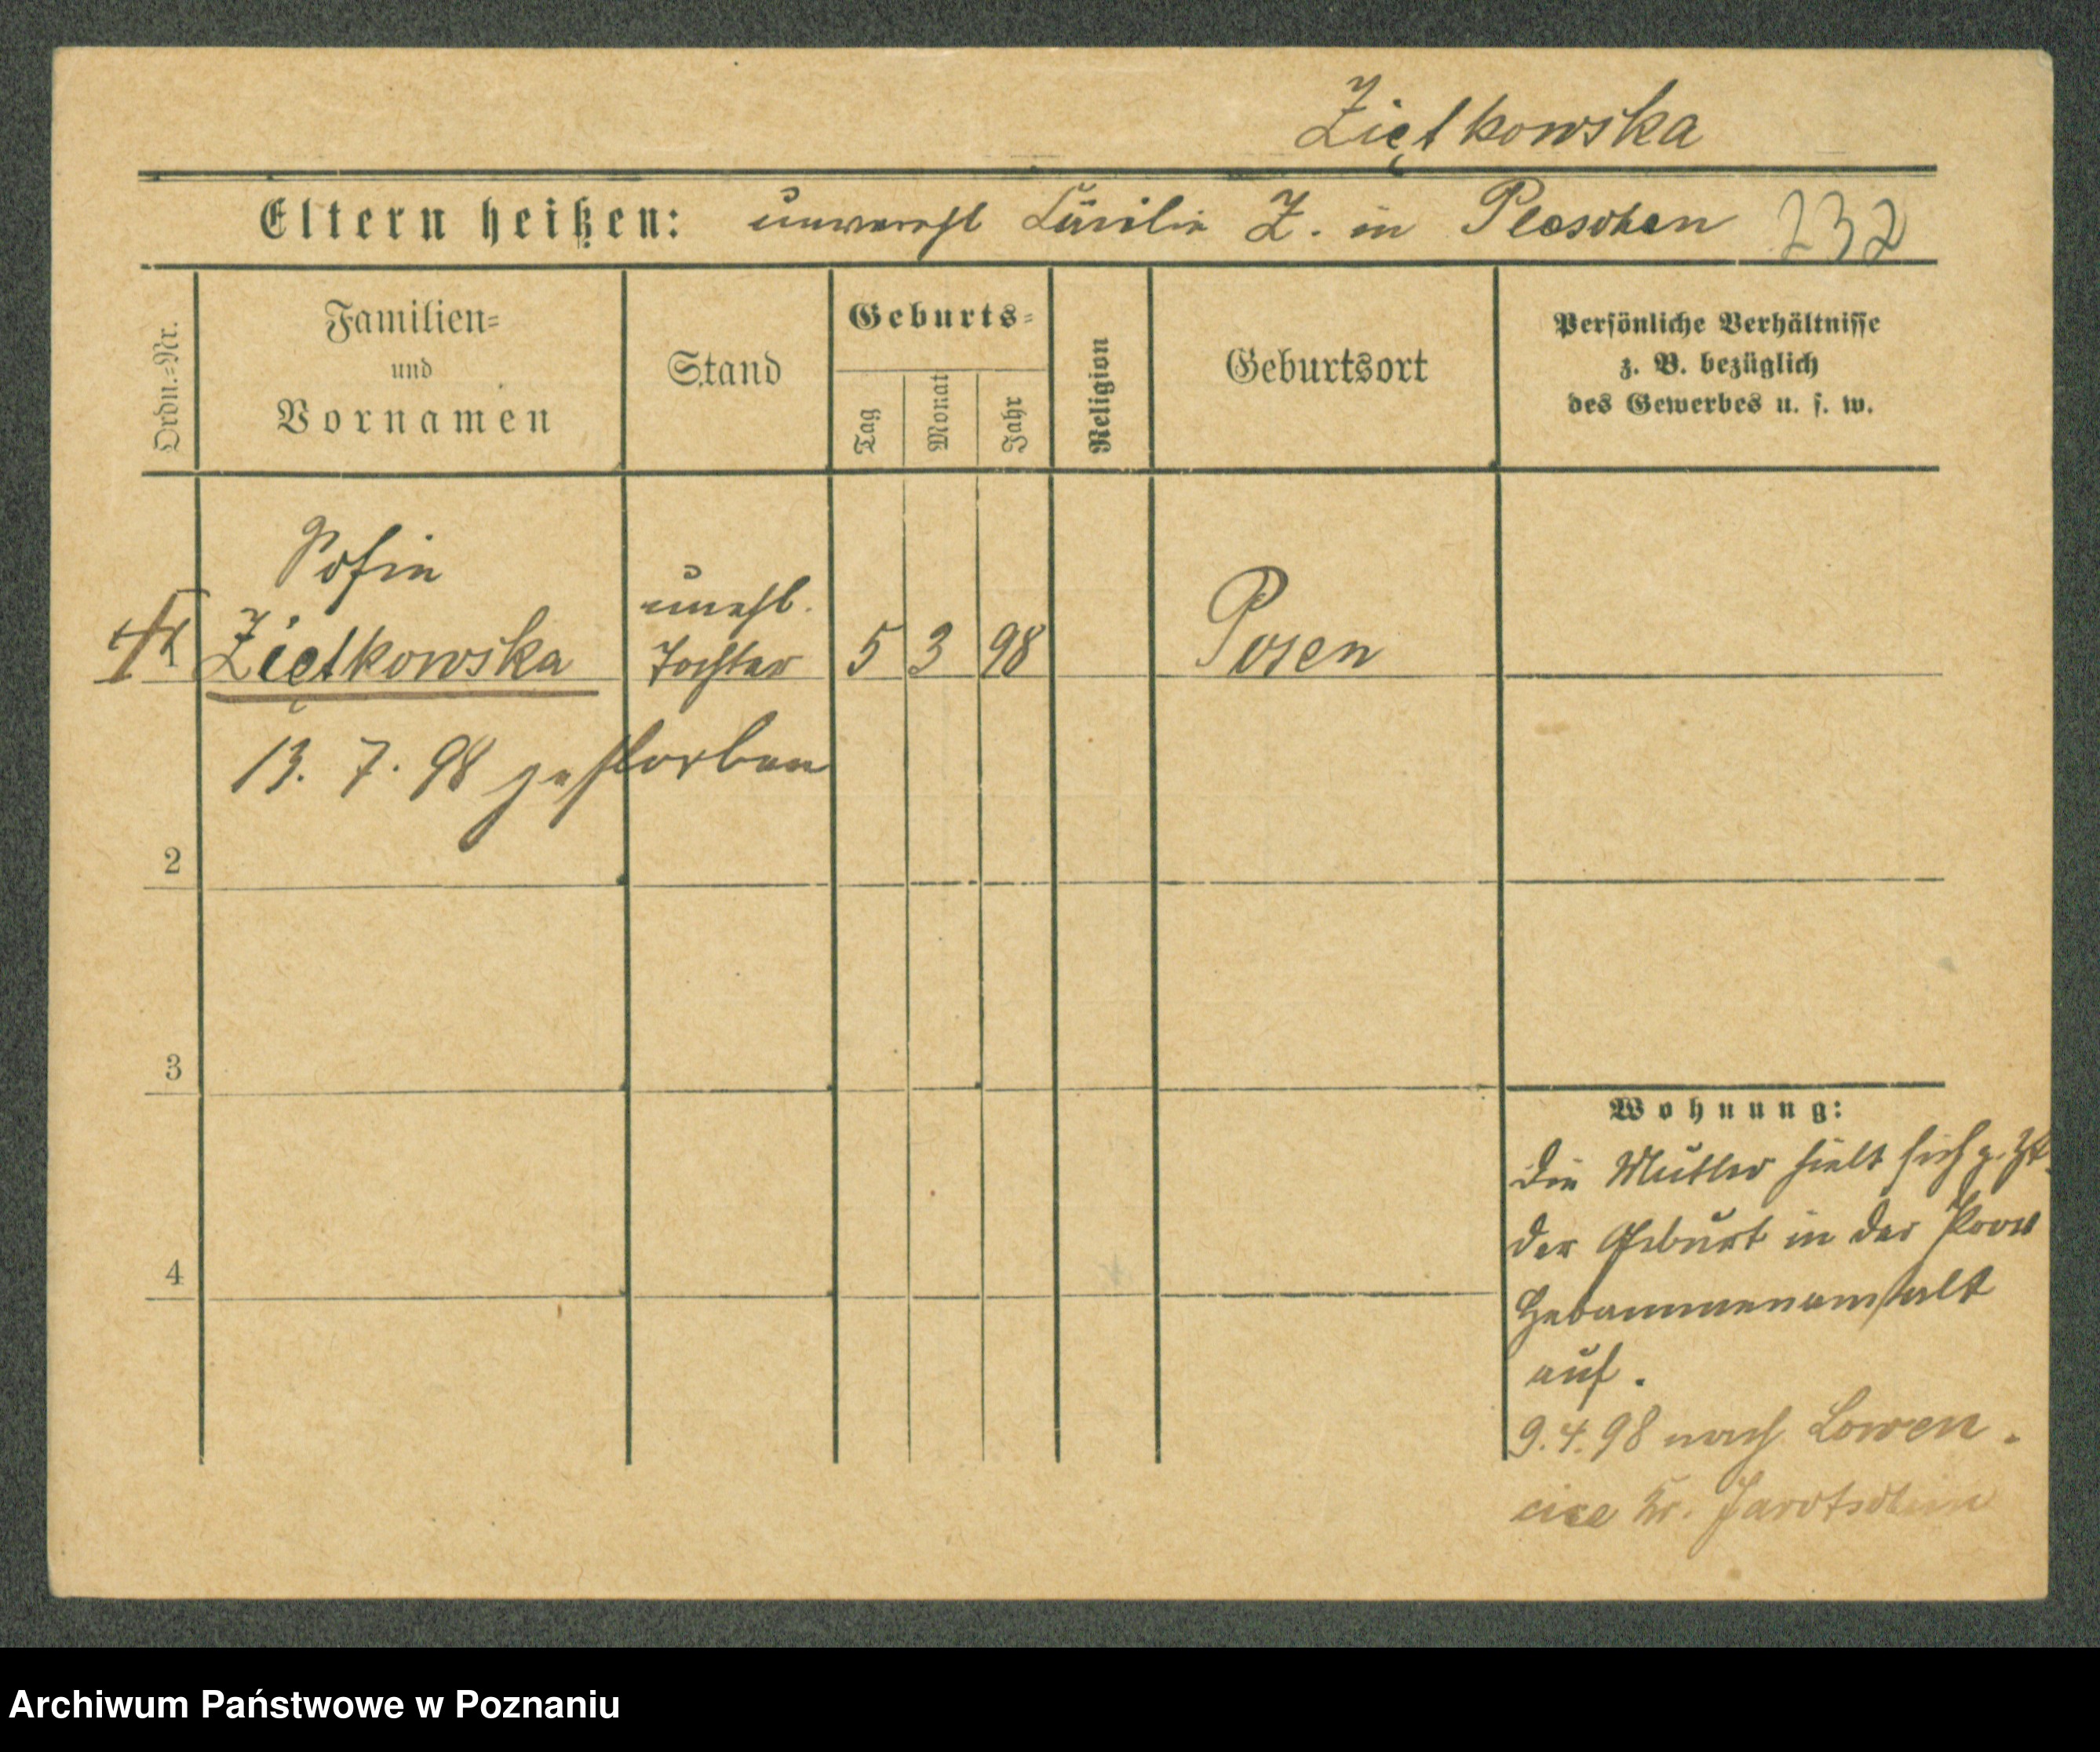 Ziętkowska
Eltern heißen: unverehl Cäcilie Z. in Pleschen 232
Ordn.-Nr.
Familien-
und
Vornamen
Stand
Geburts-
Tag
Monat
Jahr
Religion
Geburtsort
Persönliche Verhältnisse
z. B. bezüglich
des Gewerbes u. s. w.
Sofie
Ziętkowska
unehl.
Tochter
5 3 98
Posen
13. 7. 98 gestorben
2
3
4
Wohnung:
Die Mutter hielt sich z. Zt.
der Geburt in der Prov
Hebammenanstalt
auf.
9. 4. 98 nach Lowen-
cice Kr. Jarotschin
Archiwum Państwowe w Poznaniu